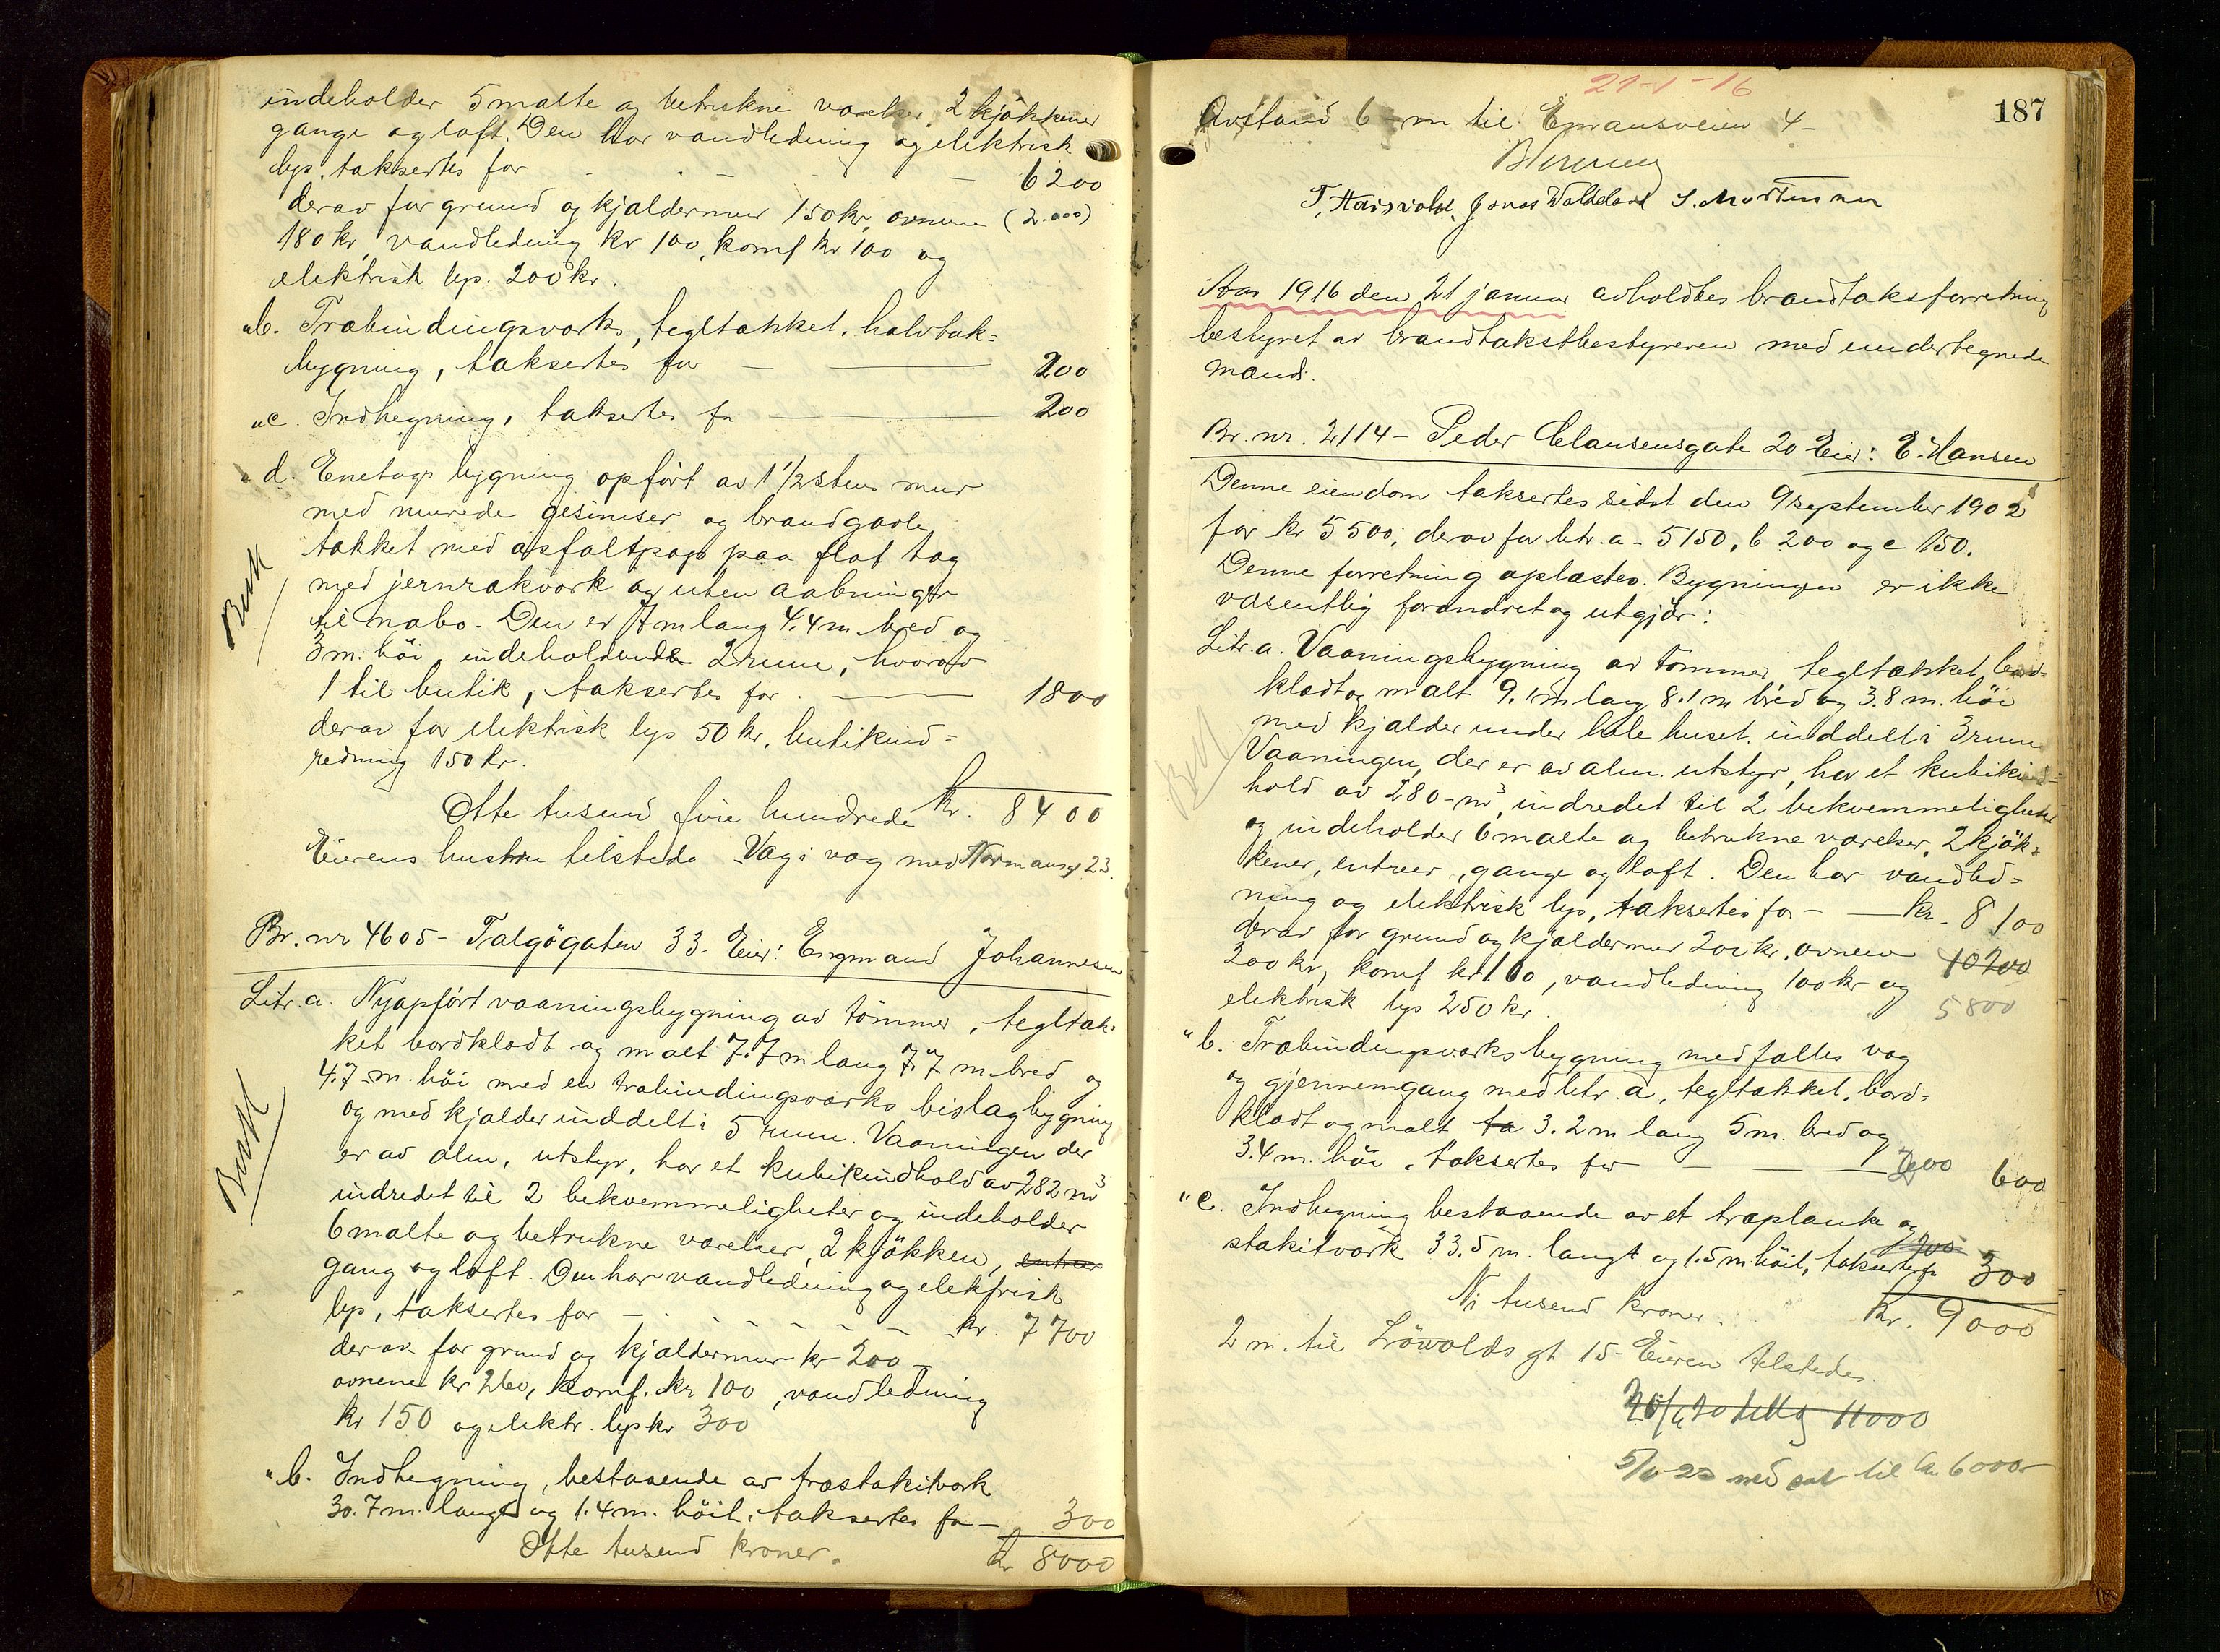 indeholder 5 malte og betrukne værelser, 2 kjökkener
gange og loft. Den har vandledning og elektrisk
lys, taksertes for - - - 6200
derav for grund og kjældermur 150 kr, ovnene (2.000)
180 kr, vandledning kr 100, komf kr 100 og
elektrisk lys. 200 kr.
" b. Træbindingsverks, tegltækket, halvtak=
bygning, taksertes for — — 200
" c. Indhegning, taksertes for — — 200
" d. Enetages bygning opført av 1 1/2 stens mur
med murede gesimser og brandgavle,
tækket med asfaltpap paa flat tag
med jernrækverk og uten aabninger
Butk
til nabo. Den er 7.4 m lang 4.4 m. bred og
3 m. höi, indeholdende 2 rum, hvorav
1 til butik, taksertes for. — 1800
derav for elektrisk lys 50 kr, butikind=
redning 150 kr.
Otte tusend fire hundrede kr. 8400
Eierens hustru tilstede Væg i væg med Normansgt 23.
Br. nr 4605 - Talgøgaten 33 - Eier: Engmand Johannesen
Litr. a. Nyopfört vaaningsbygning av tömmer, tegltæk-
ket bordklædt og malt 7.7 m lang 7.7 m. bred og
4.7 m. höi med en træbindingsverks bislagbygning
og med kjælder inddelt i 5 rum. Vaaningen der
er av alm. utstyr, har et kubikindhold av 282 m³
indredet til 2 bekvemmeligheter og indeholder
6 malte og betrukne værelser, 2 kjökken, entreer
gang og loft. Den har vandledning og elektrisk
lys, taksertes for - - - - - - kr. 7700
derav for grund og kjældermur kr 200 -
ovnene kr 260, komf. kr 100, vandledning
kr 150 og elektr. lys kr 300
" b. Indhegning, bestaaende av træstakitverk
30.7 m. langt og 1.4 m. höit, taksertes for — 300
Otte tusend kroner. kr 8000
21-1-16
187
Avstand 6 m til Emausveien 4 -
T. Hauswald. Jonas Waldeland S. Mortensen
Aar 1916 den 21 januar avholdtes brandtaksforretning
bestyret av brandtakstbestyreren med undertegnede
mænd.
Br. nr. 2114 - Peder Clausensgate 20 Eier: E. Hansen
Denne eiendom taksertes sidst den 9 september 1902
for kr 5500, derav for litr. a - 5150, b 200 og c 150.
Denne forretning oplæstes. Bygningen er ikke
væsentlig forandret og utgjør:
Litr. a. Vaaningsbygning av tömmer, tegltækket bord=
klædt og malt 9.1 m lang 8.1 m bred og 3.8 m. höi
med kjælder under hele huset, inddelt i 3 rum
Vaaningen, der er av alm. utstyr, har et kubikind=
hold av 280 - m³, indredet til 2 bekvemmeligheter
og indeholder 6 malte og betrukne værelser, 2 kjök=
kener, entreer, gange og loft. Den har vandled=
ning og elektrisk lys, taksertes for - — kr. 8100
derav for grund og kjældermur 200 kr, ovnene 10200
200 kr, komf kr 100, vandledning 100 kr og
elektrisk lys 250 kr. 5800
" b. Træbindingsverksbygning med fælles væg
og gjennemgang med litr. a, tegltækket, bord=
klædt og malt ta 3.2 m lang 5 m. bred og
3.4 m. höi, taksertes for — — — 600
" c. Indhegning bestaaende av et træplanke og
stakitverk 33.5 m. langt og 1.5 m. höit, taksertes for 300
Ni tusend kroner. kr. 9000
2 m. til Lövolds gt 15 - Eieren tilstede.
11000
med sat til kr 6000-